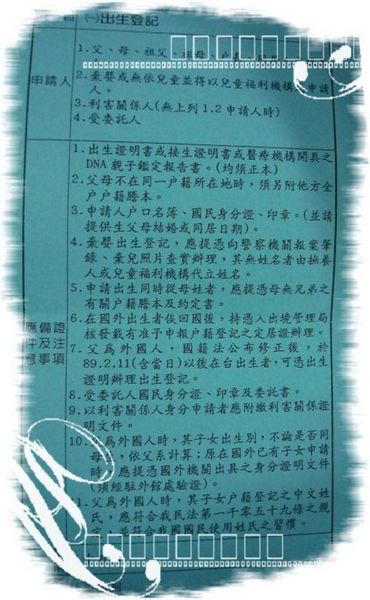 (一)出生登記
申請人
1.父、母、祖父、祖母、戶
2.棄嬰或無依兒童並得以兒童福利機構 申請
人。
3.利害關係人(無上列1.2申請人時)
4.受委託人
應備證
件及注
意事項
1.出生證明書或接生證明書或醫療機構開具之
DNA親子鑑定報告書。(均須正本)
2.父母不在同一户籍所在地時,須另附他方全
户户籍謄本。
3.申請人户口名簿、國民身分證、印章。(並請
提供生父母結婚或同居日期)。
4.棄嬰出生登記,應提憑向警察機關報案筆
錄、棄兒照片查實辦理,其無姓名者由撫養
人或兒童福利機構代立姓名。
5.申請出生同時從母姓者,應提憑母無兄弟之
有關户籍謄本及約定書。
6.在國外出生者俟回國後,持憑入出境管理局
核發載有准予申報户籍登記之定居證辦理。
7.父為外國人,國籍法公布修正後,於
89.2.11(含當日)以後在台出生者,可憑出生
證明辦理出生登記。
8.受委託人國民身分證、印章及委託書。
9.以利害關係人身分申請者應附繳利害關係證
明文件。
10.父為外國人時,其子女出生別,不論是否同
母生,依父系計算;原在國外已有子女申請
時,應提憑外國機關出具之身分證明文件
(須經駐外館處驗證)。
11.父為外國人時,其子女户籍登記之中文姓
氏,應符合我民法第一千零五十九條之規
定,並符合我國國民使用姓氏之習慣。